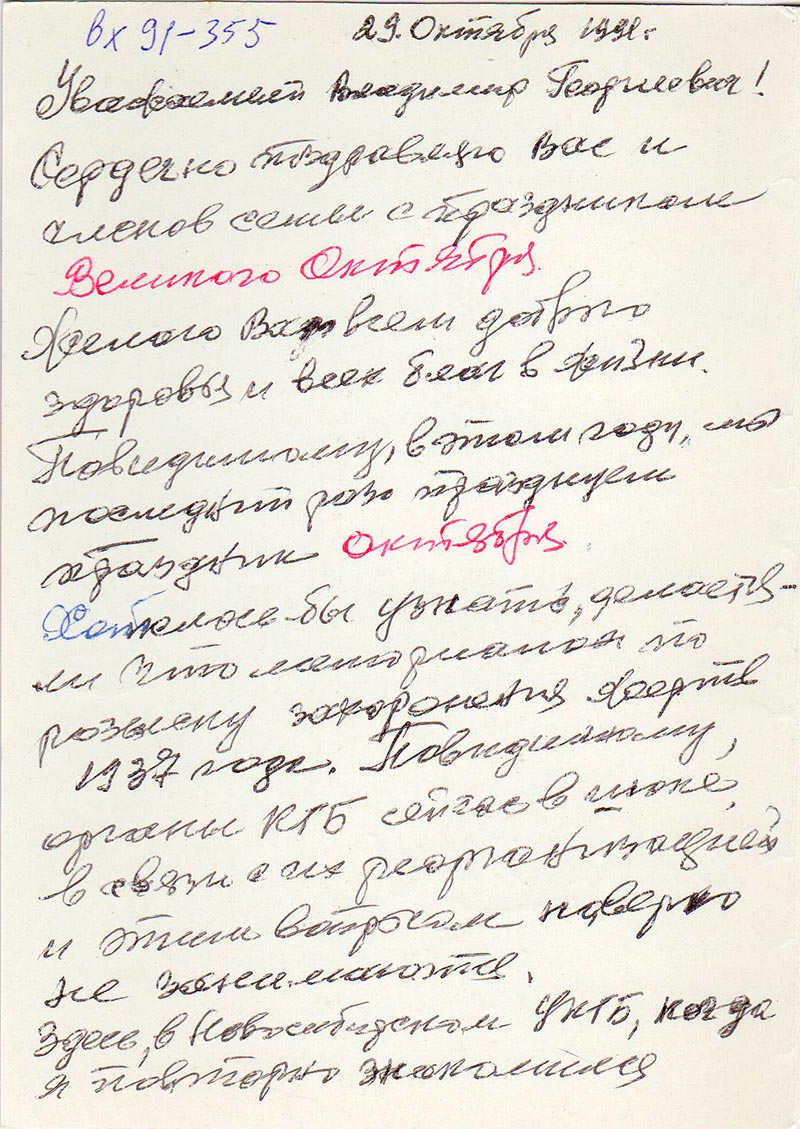 Вх 91-355
29. Октября 1991г.
Уважаемый Владимир Георгиевич!
Сердечно поздравляю Вас и
членов семьи с праздником
Великого Октября.
Желаю Вам всем доброго
здоровья и всех благ в жизни.
Повидимому, в этом году, мы
последний раз празднуем
праздник Октября.
Хотелось бы узнать, делается-
ли что мемориалом по
розыску захоронения жертв
1937 года. Повидимому,
органы КГБ сейчас в шоке,
в связи с их реорганизацией
и этим вопросом наверно
не занимаются.
Здесь, в Новосибирском УКГБ, когда
я повторно знакомился